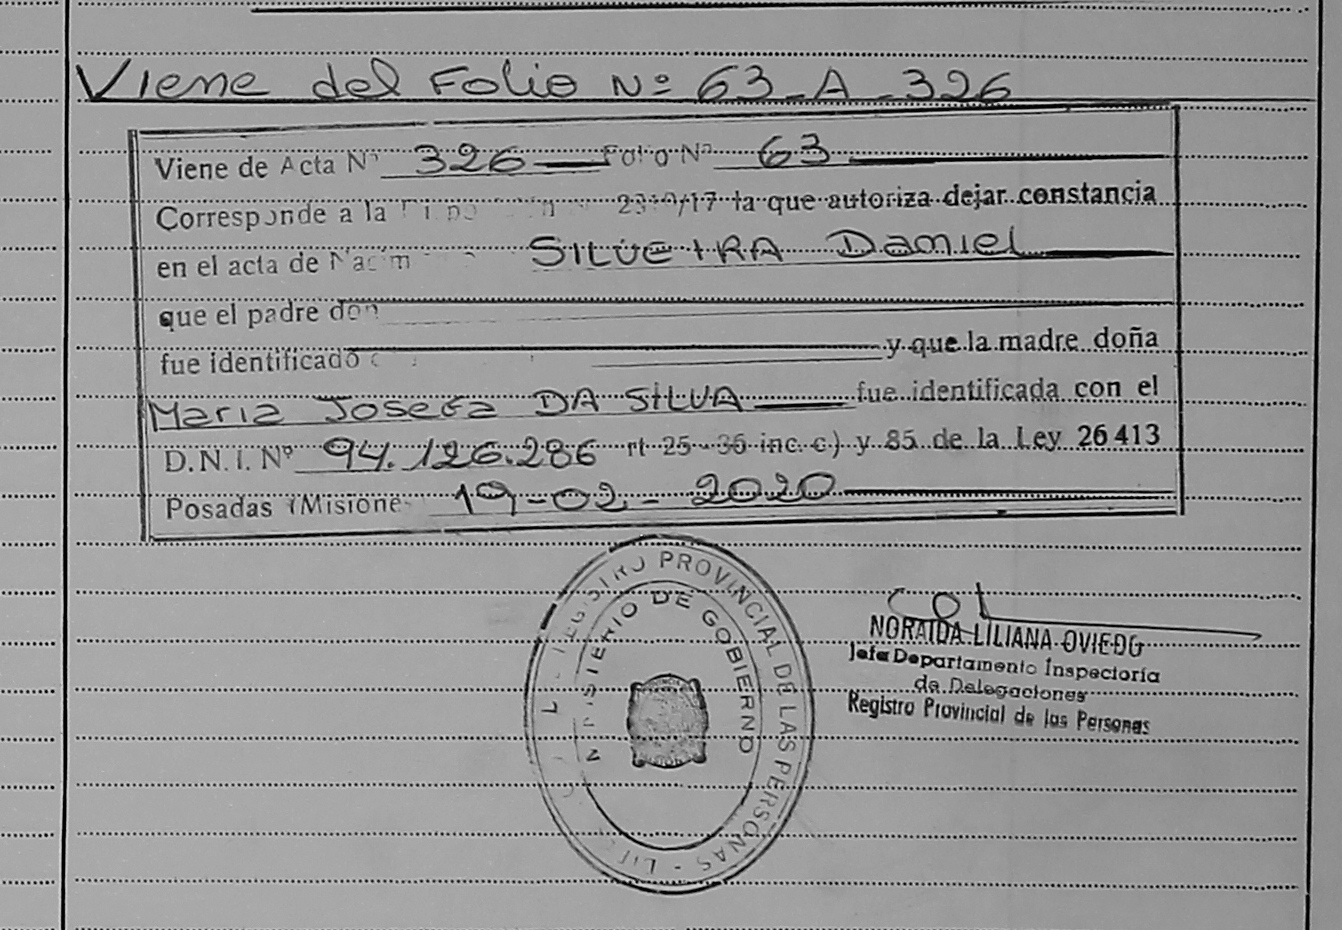 Viene del Folio Nº 63-A-326
Viene de Acta Nº 326 Folio Nº 63
Corresponde a la 2310/17 la que autoriza dejar constancia
en el acta de Nacim SILVEIRA Daniel
que el padre don
fue identificado y que la madre doña
Maria Josefa DA SILVA fue identificada con el
D.N.I. Nº 94.126.286 rt 25-36 inc. c) y 85 de la Ley 26413
Posadas (Misione 19-02-2020
REGISTRO PROVINCIAL DE LAS PERSONAS
NISTERIO DE GOBIERNO
NORAIDA LILIANA OVIEDO
Jefa Departamento Inspectoría
de Delegaciones
Registro Provincial de las Personas